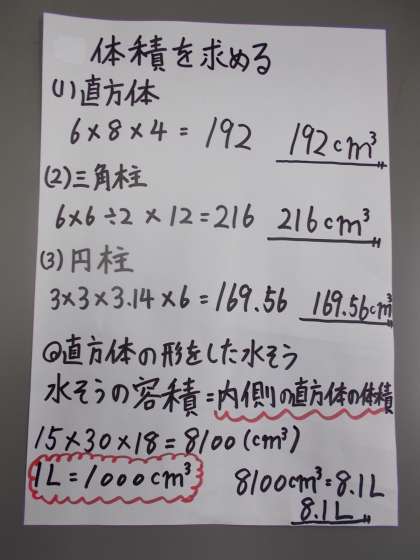 体積を求める
(1)直方体
6×8×4=192 192cm³
(2)三角柱
6×6÷2×12=216 216cm³
(3)円柱
3×3×3.14×6=169.56 169.56cm³
◎直方体の形をした水そう
水そうの容積=内側の直方体の体積
15×30×18=8100(cm³)
1L=1000cm³ 8100cm³=8.1L
8.1L